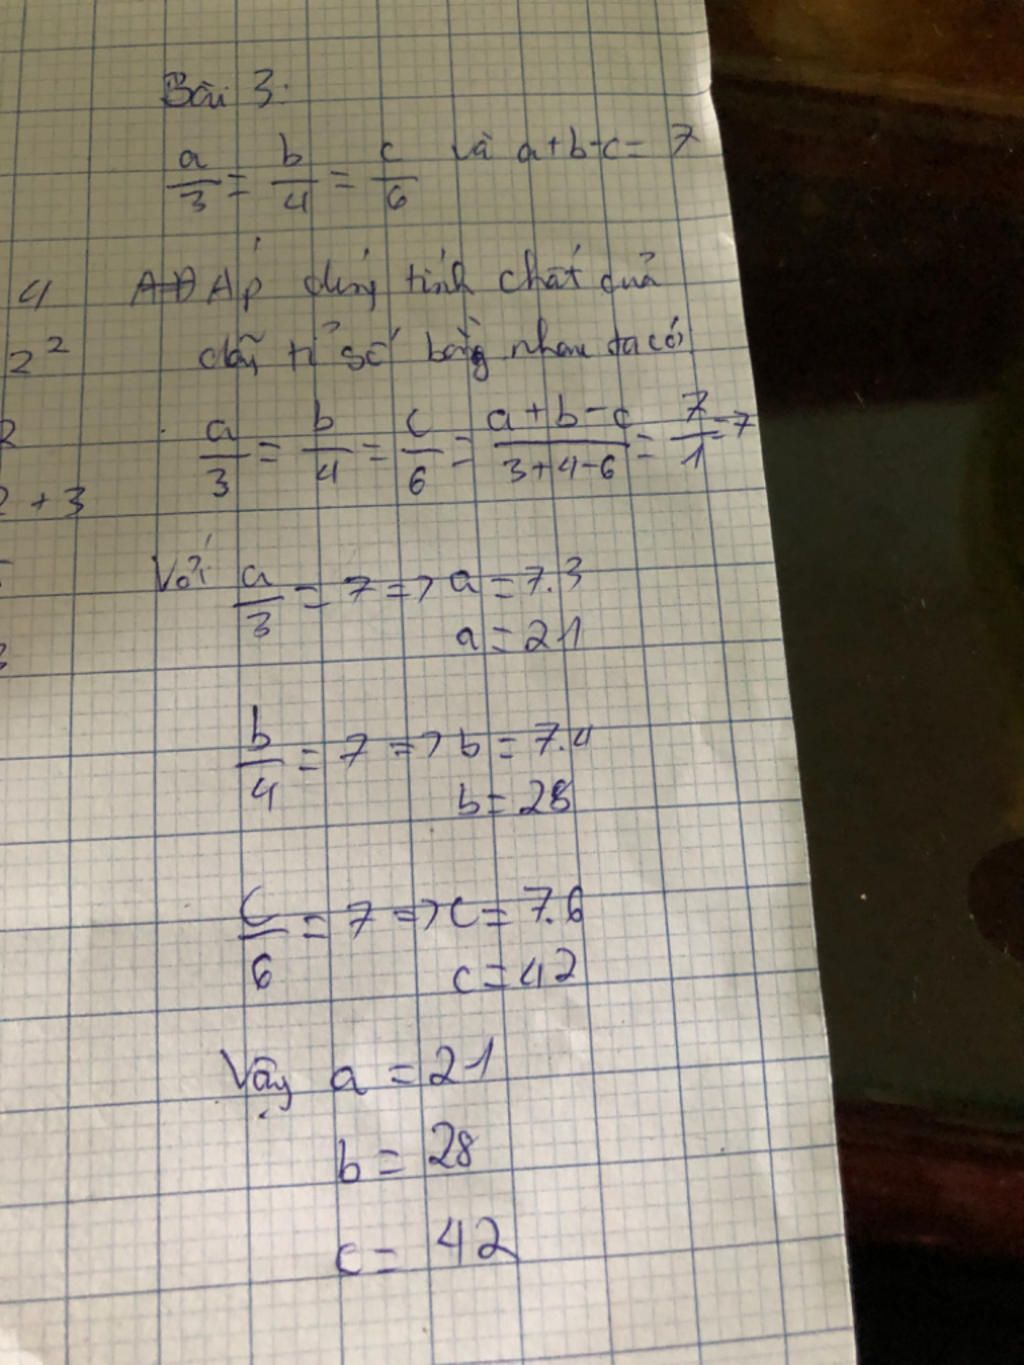 Bài 3:
a/3 = b/4 = c/6 và a+b-c = 7
4
AD Áp dụng tính chất quả
2²
dãy tỉ số bằng nhau ta có
a/3 = b/4 = c/6 = a+b-c/3+4-6 = 7/1 = 7
2
2 + 3
Với a/3 = 7 => a = 7.3
a = 21
3
b/4 = 7 => b = 7.4
b = 28
c/6 = 7 => c = 7.6
c = 42
Vậy a = 21
b = 28
c = 42